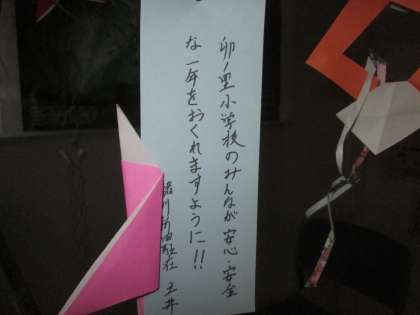 卯ノ里小学校のみんなが安心・安全
な一年をおくれますように!!
駐在 土井